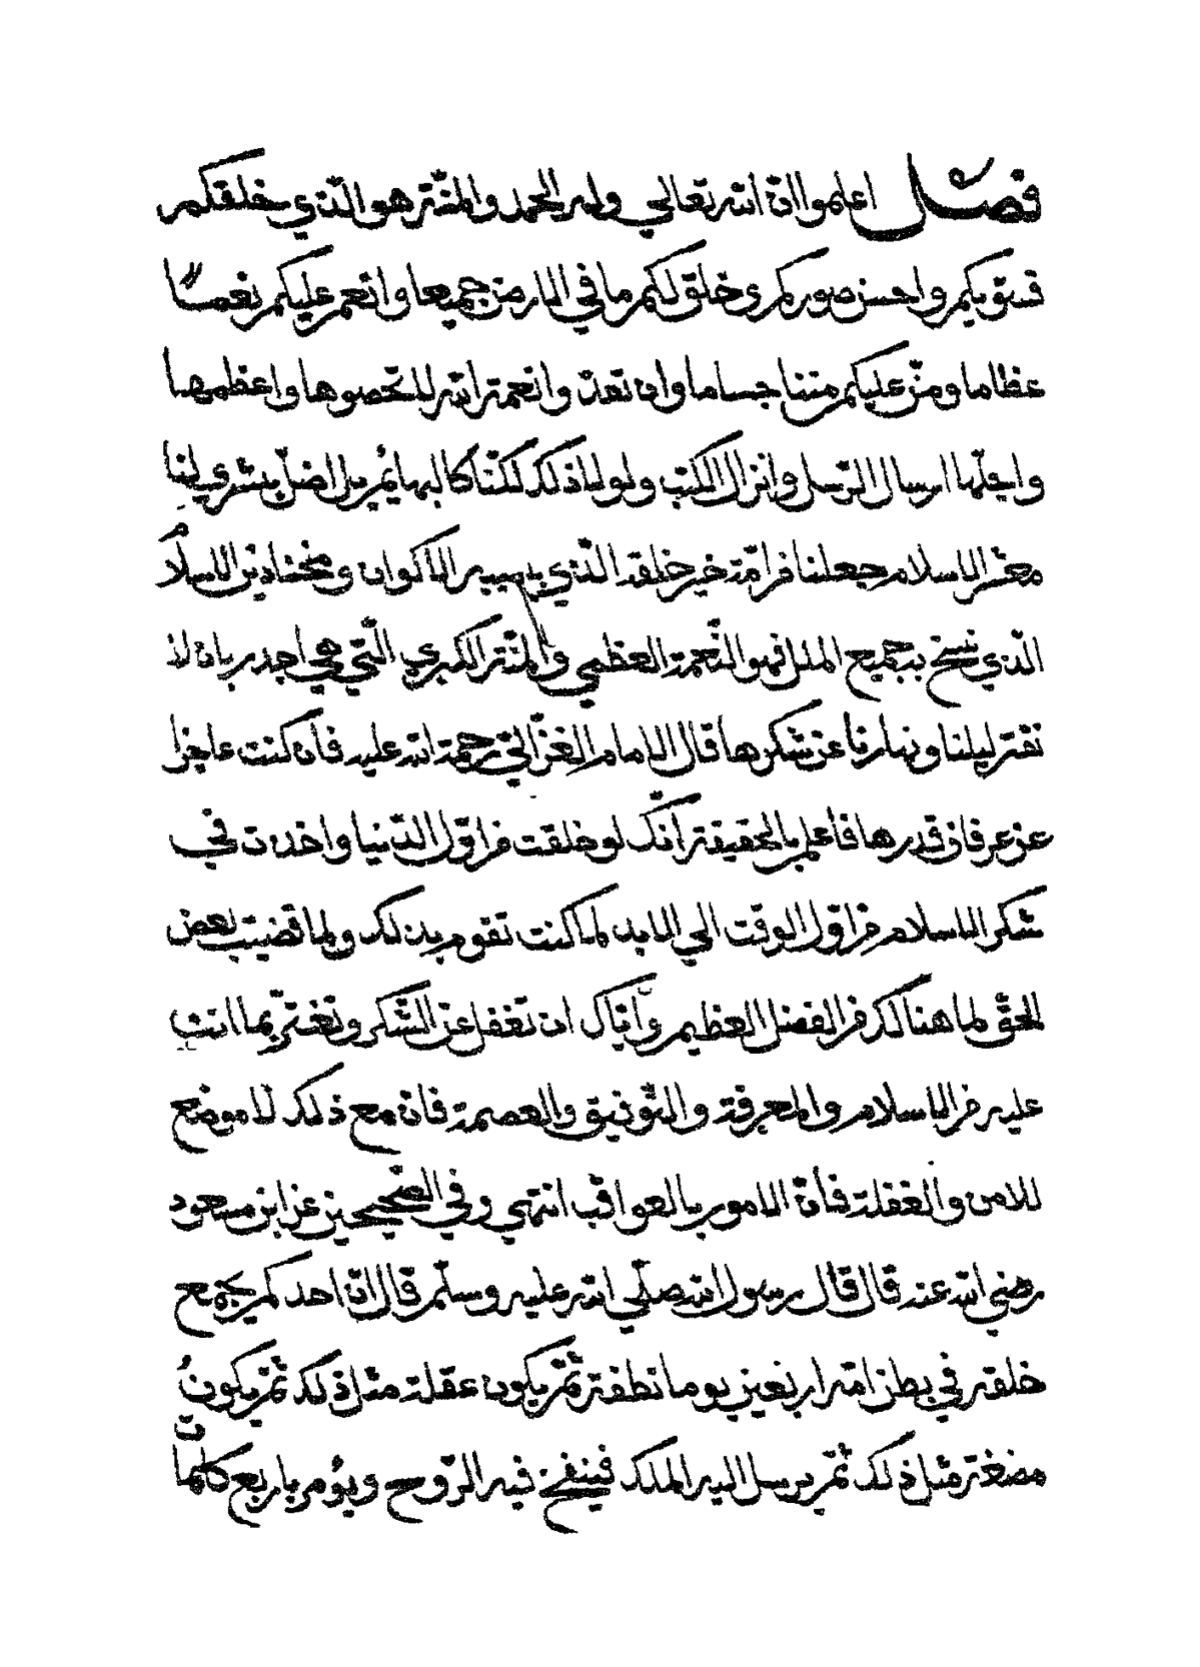 فصل اعلموا ان الله تعالى وله الحمد والمنة هو الذي خلقكم
فسويكم واحسن صوركم خلق لكم ما في الارض جميعا وانعم عليكم نعما
عظاما ومن عليكم مننا جساما وان تعدوا نعمة الله لا تحصوها واعظمها
واجلها ارسال الرسل وانزال الكتب ولولا ذلك لكنا كالبهائم بل اضل بشرى لنا
معشر الاسلام جعلنا من امة خير خلقه الذي به سير الاكوان ومنحنا دين الاسلام
الذي نسخ به جميع الملل فهو النعمة العظمى والمنة الكبرى التي هي اجدر بان لا
نفتر ليلنا ونهارنا عن شكرها قال الامام الغزالي رحمة الله عليه فان كنت عاجزا
عن عرفان قدرها فاعلم بالحقيقة انك لو خلقت من اول الدنيا واخذت في
شكر الاسلام من اول الوقت الى الابد لما كنت تقوم بذلك ولما قضيت بعض
الحق لما هنالك من الفضل العظيم واياك ان تغفل عن الشكر وتغتر بما انت
عليه من الاسلام والمعرفة والتوفيق والعصمة فان مع ذلك لا موضع
للامن والغفلة فان الامور بالعواقب انتهى وفي الصحيحين عن ابن مسعود
رضي الله عنه قال قال رسول الله صلى الله عليه وسلم قال ان احدكم يجمع
خلقه في بطن امه اربعين يوما نطفة ثم يكون علقة مثل ذلك ثم يكون
مضغة مثل ذلك ثم يرسل اليه الملك فينفخ فيه الروح ويؤمر باربع كلمات